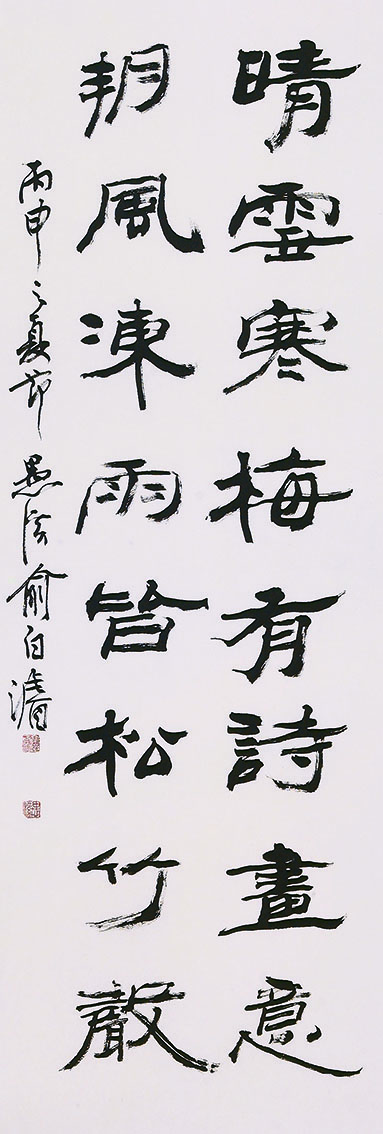 晴雲寒梅有詩畫意
朔風凍雨皆松竹聲
丙申之夏節 愚 俞白